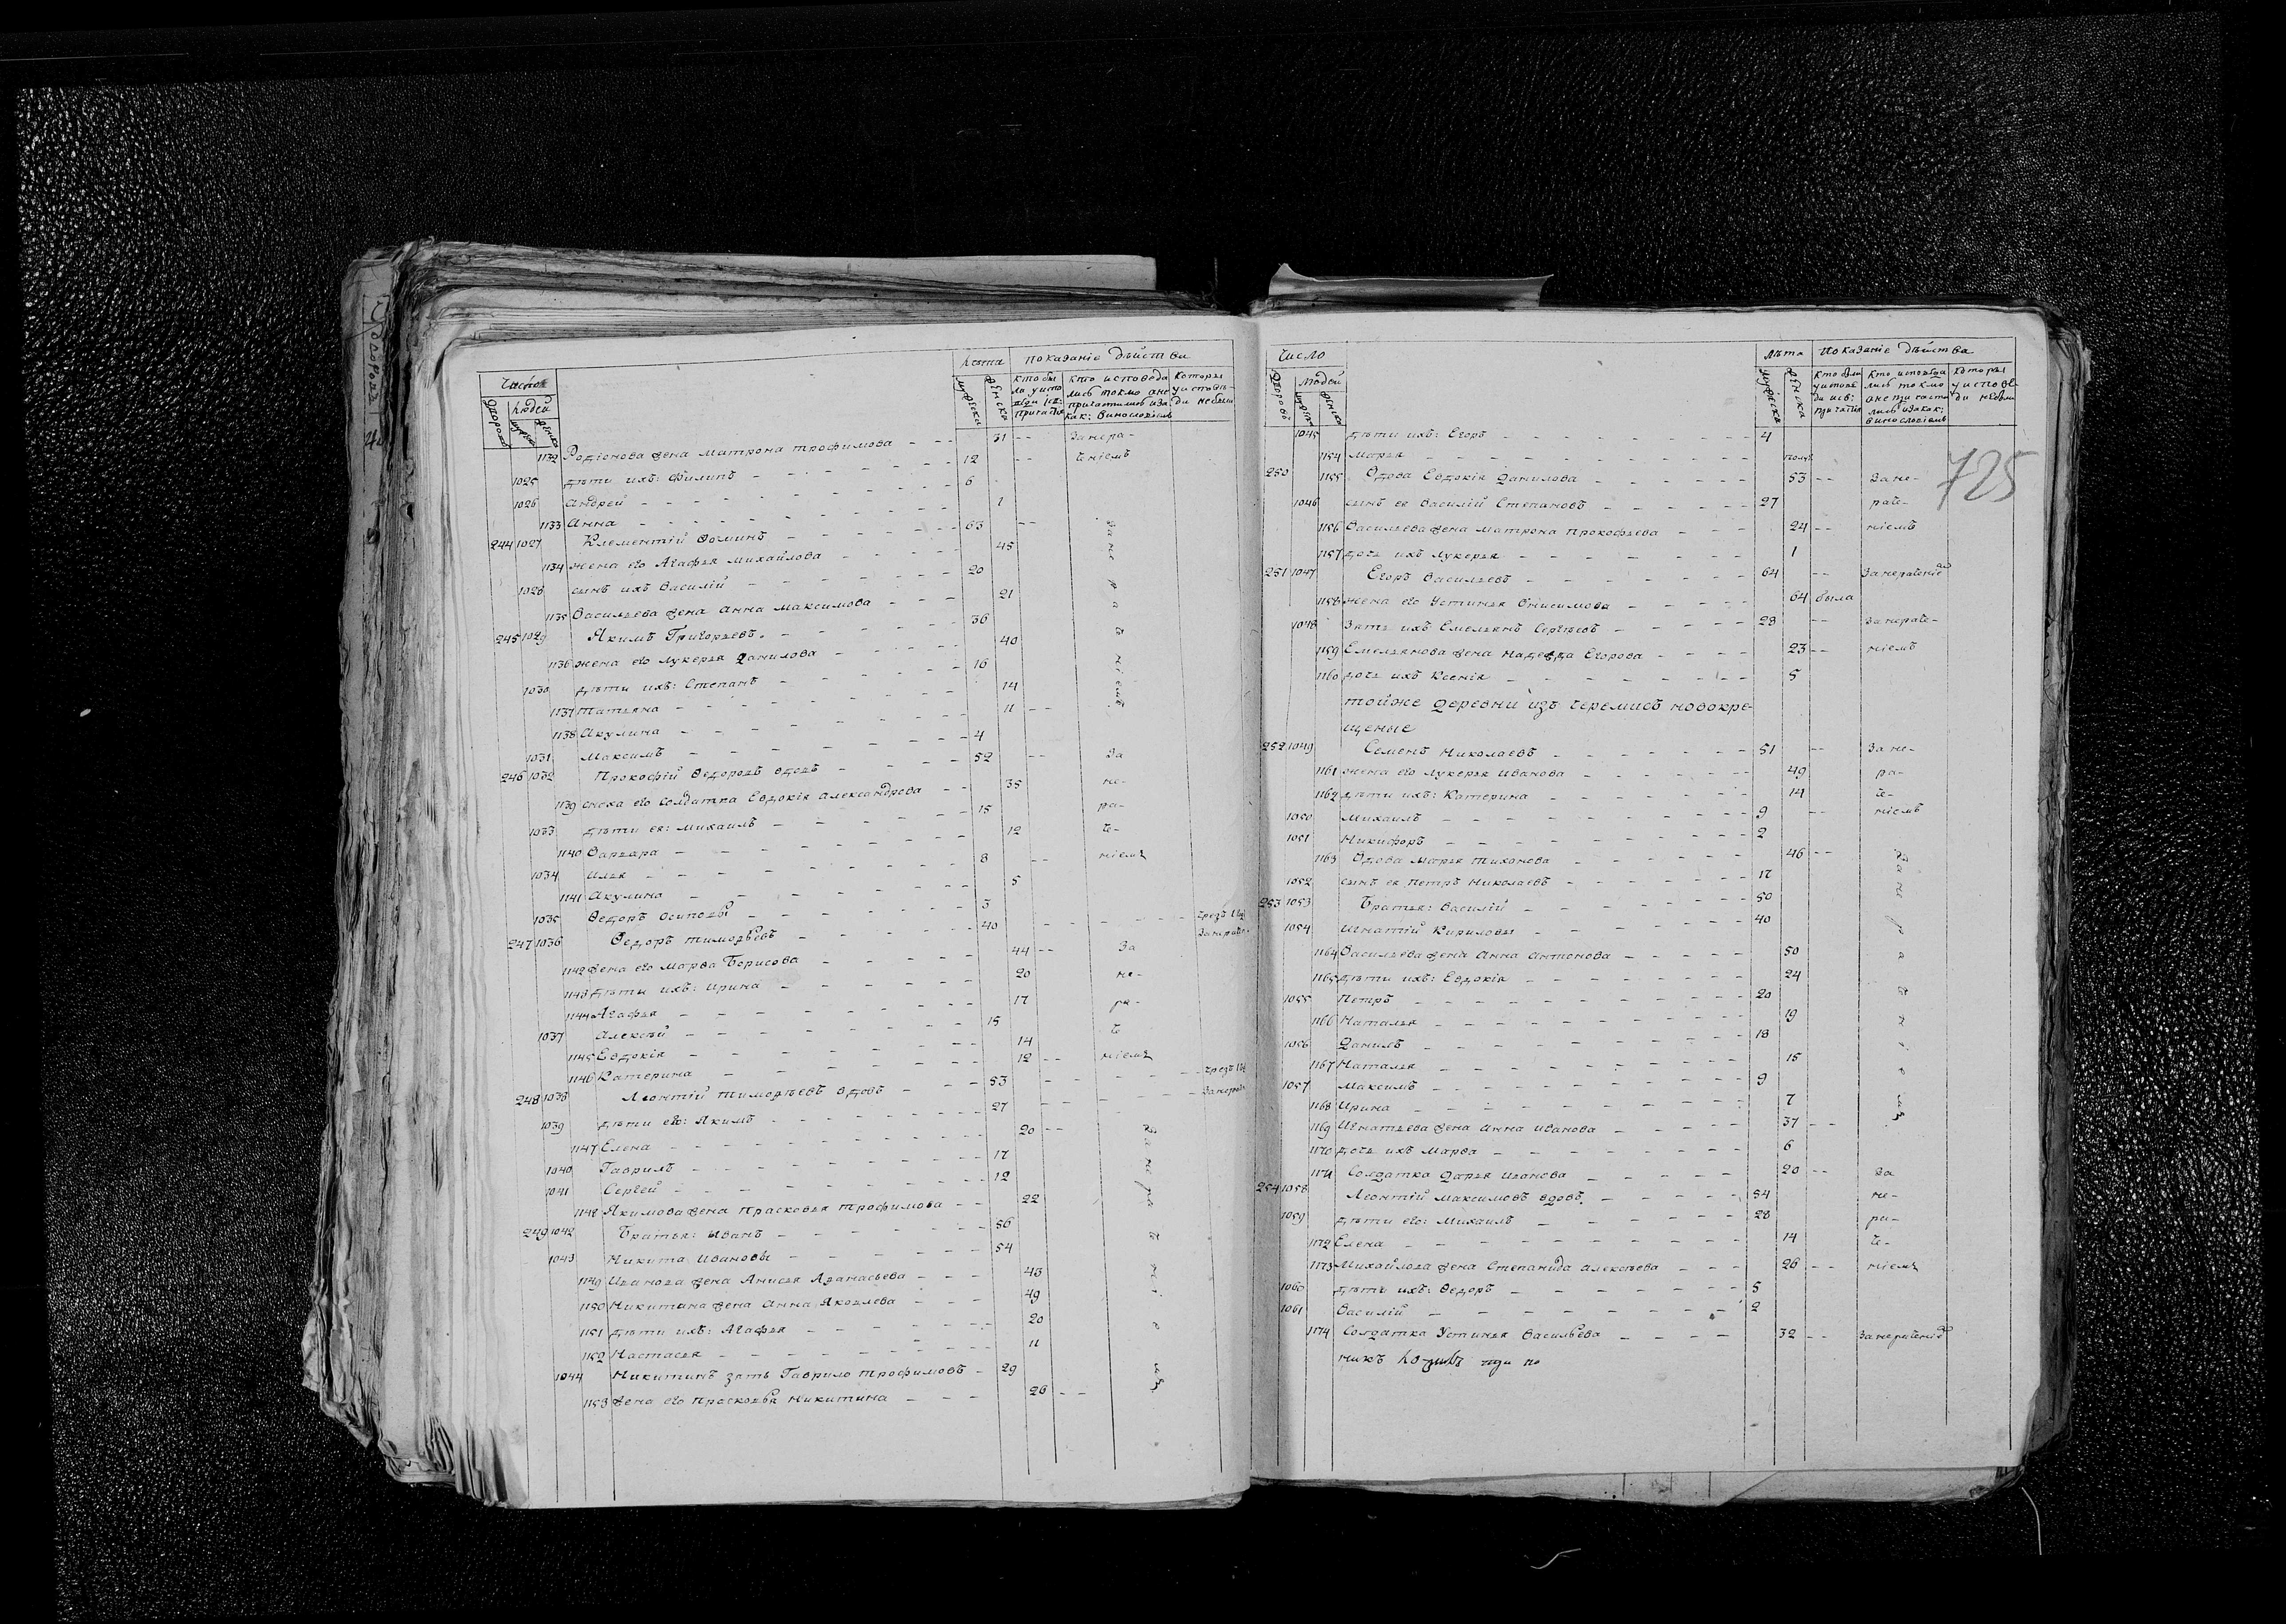 Число
Дворовъ
Людей
мужеска
женска
Лѣта
мужеска
женска
Показаніе дѣйства
кто были у исповѣди и св: причастія
кто исповѣдались токмо а не причастились и за как: винословіемъ
которы у исповѣди не были
1132 Родіонова жена Матрона Трофимова 31 За нера-
1025 дѣти ихъ: Филипъ 12 ченіемъ
1026 Андрей 6
1133 Анна 1
244 1027 Клементій Фоминъ 63 За нераченіемъ
1134 жена его Агафья Михайлова 45
1028 сынъ ихъ Василій 20
1135 Васильева жена Анна Максимова 21
245 1029 Якимъ Григорьевъ 36
1136 жена его Лукерья Данилова 40
1030 дѣти ихъ: Степанъ 16
1137 Татьяна 14
1138 Акулина 11
1031 Максимъ 4
246 1032 Прокофій Федоровъ вдовъ 52 За
1139 сноха его солдатка Евдокія Александрова 35 не-
1033 дѣти ея: Михаилъ 15 ра-
1140 Варвара 12 че-
1034 Илья 8 ніемъ
1141 Акулина 5
1035 Федоръ Осиповы 3
247 1036 Федоръ Тимофѣевъ 40
1142 жена его Марфа Борисова 44 За
1143 дѣти ихъ: Ирина 20 не-
1144 Агафья 17 ра-
1037 Алексѣй 15 че
1145 Евдокія 14 ніемъ
1146 Катерина 12
248 1038 Леонтій Тимофѣевъ вдовъ 53
1039 дѣти его: Якимъ 27
1147 Елена 20 За нераченіемъ
1040 Гаврилъ 17
1041 Сергей 12
1148 Якимова жена Прасковья Трофимова 22
249 1042 Братья: Иванъ 56
1043 Никита Ивановы 54
1149 Иванова жена Анисья Афанасьева 43
1150 Никитина жена Анна Яковлева 49
1151 дѣти ихъ: Агафья 20
1152 Настасья 11
1044 Никитинъ зять Гаврило Трофимовъ 29
1153 жена его Прасковья Никитина 26
Число
Дворовъ
Людей
мужеска
женска
Лѣта
мужеска
женска
Показаніе дѣйства
кто были у исповѣди и св: причастія
кто исповѣдались токмо а не причастились и за как: винословіемъ
которы у исповѣди не были
725
1045 дѣти ихъ: Егоръ 4
1154 Марья
250 1155 Вдова Евдокія Данилова 53 За не-
1046 сынъ ея Василій Степановъ 27 раче-
1156 Васильева жена Матрона Прокофьева 24 ніемъ
1157 дочь ихъ Лукерья 1
251 1047 Егоръ Васильевъ 64 За нераченіе
1158 жена его Устинья Онисимова 64 была
1048 Зять ихъ Емельянъ Сергѣевъ 23 За нераче-
1159 Емельянова жена Надежда Егорова 23 ніемъ
1160 дочь ихъ Ксенія 5
Тойже деревни изъ черемисъ новокре-
щеные
252 1049 Семенъ Николаевъ 51 За не-
1161 жена его Лукерья Иванова 49 ра-
1162 дѣти ихъ: Катерина 14 че-
1050 Михаилъ 9 ніемъ
1051 Никифоръ 2
1163 Вдова Марья Тихонова 46 За нераченіемъ
1052 сынъ ея Петръ Николаевъ 17
253 1053 Братья: Василій 50
1054 Игнатій Кириловы 40
1164 Васильева жена Анна Антонова 50
1165 дѣти ихъ: Евдокія 24
1055 Петръ 20
1166 Наталья 19
1056 Данилъ 18
1167 Наталья 15
1057 Максимъ 9
1168 Ирина 7
1169 Игнатьева жена Анна Иванова 37
1170 дочь ихъ Марфа 6
1171 Солдатка Дарья Иванова 20 За
254 1058 Леонтій Максимовъ вдовъ 54 не-
1059 дѣти его: Михаилъ 28 ра-
1172 Елена 14 че-
1173 Михайлова жена Степанида Алексѣева 26 ніемъ
1060 дѣти ихъ: Федоръ 5
1061 Василій 2
1174 Солдатка Устинья Васильева 32 За нераченіе